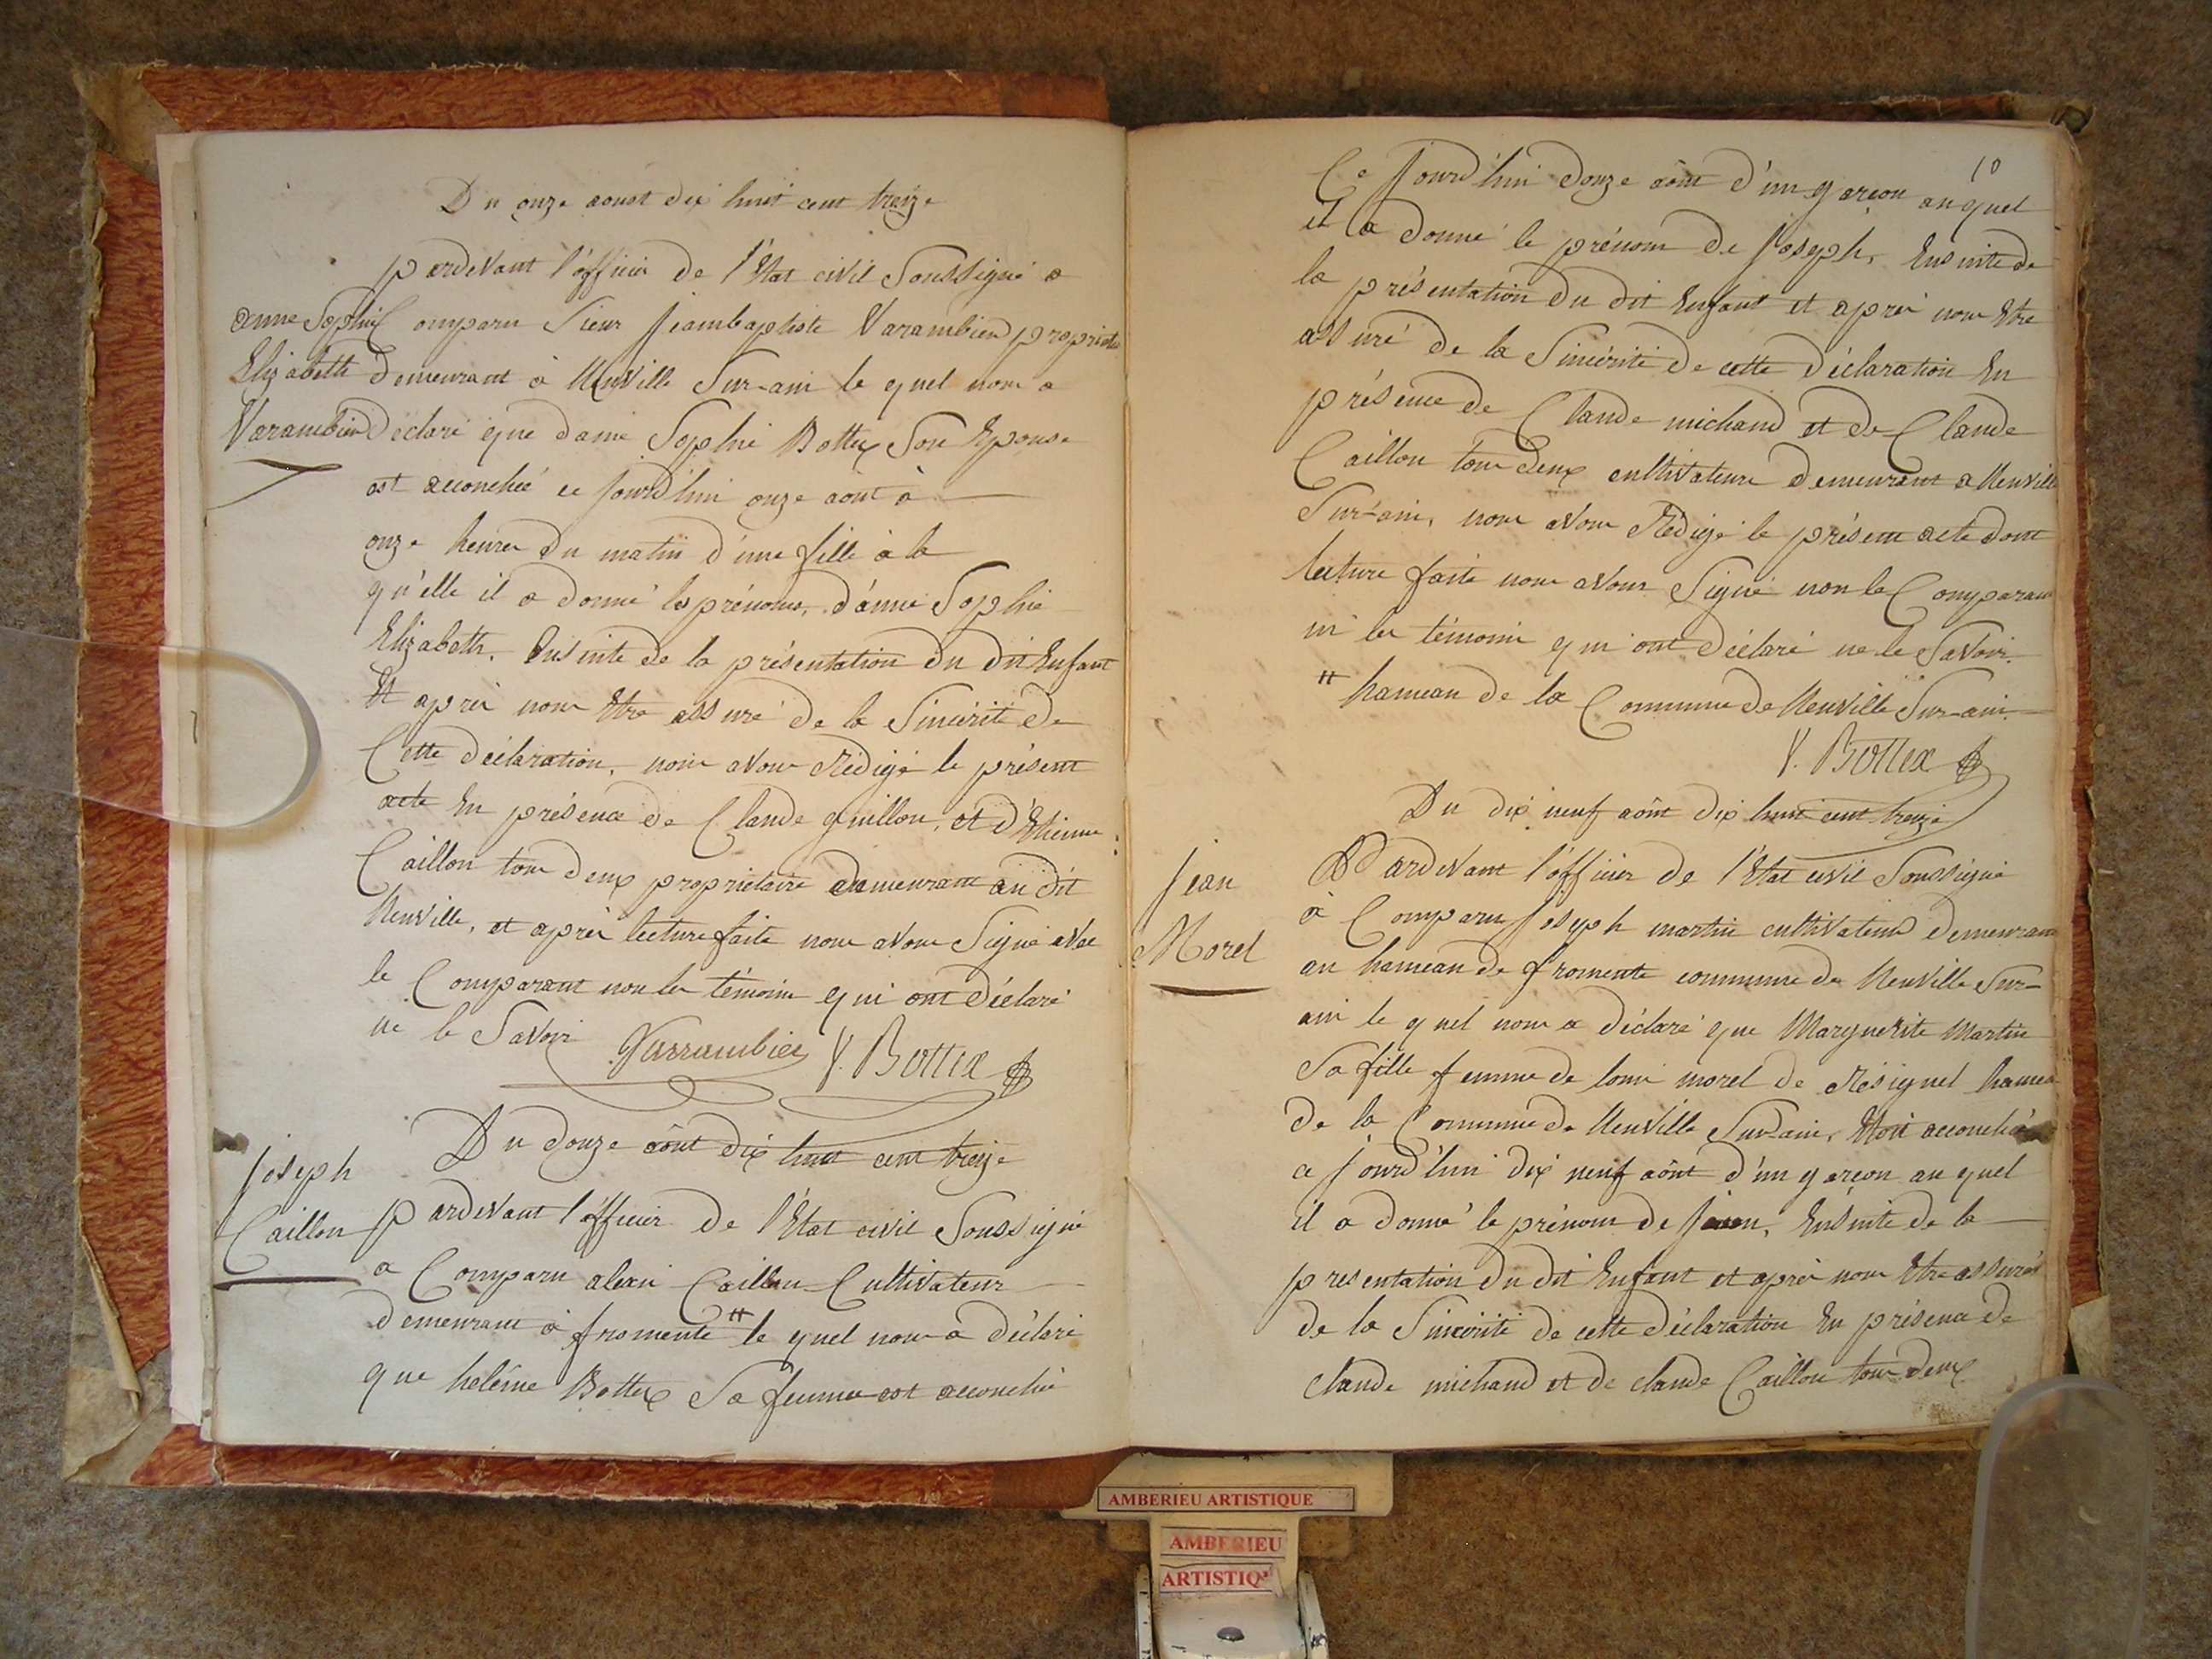 Du onze aoust dix huit cent treize
pardevant l'officier de l'Etat civil Soussigné a
anne Sophie
Comparu Sieur jeambaptiste Varambier propriétre
Elizabeth
Demeurant à Neuville Sur-ain le quel nous a
Varambier
Déclaré que dame Sophie Bottex Son Epouse
est accouchée ce jourd'hui onze aout à
onze heures du matin d'une fille à la
qu'elle il a donné les prénoms, d'anne Sophie
Elizabeth. Ensuite de la présentation du dit Enfant
Et après nous Etre assuré de la Sincérité de
Cette déclaration, nous avons Rédigé le présent
acte En présence de Claude guillon, et d'Etienne
Caillon tous deux proprietaire demeurant au dit
Neuville, et après lecture faite nous avons Signé avec
le Comparant non les témoins qui ont déclaré
ne le Savoir Varrambier V. Bottex
Du douze aôut dix huit cent treize
Joseph
Caillon
pardevant l'officier de l'Etat civil Soussigné
a Comparu alexis Caillon Cultivateur
demeurant à fromente # le quel nous a déclaré
que heléine Bottex Sa femme est accouchée
10
Ce jourd'hui douze aôut d'un garçon auquel
il a donné le prénom de Joseph, Ensuite de
la présentation du dit Enfant et après nous Etre
assuré de la Sincérité de cette déclaration En
présence de Claude michaud et de Claude
Caillon tous deux cultivateurs demeurant a Neuville
Sur-ain, nous avons Rédigé le présent acte dont
lecture faite nous avons Signé non le Comparant
ni les témoins qui ont déclaré ne le Savoir.
# hameau de la Commune de Neuville Sur-ain.
V. Bottex
Du dix neuf aôut dix huit cent treize
Jean
Morel
Pardevant l'officier de l'Etat civil Soussigné
à Comparu Joseph martin cultivateur demeurant
au hameau de fromente commune de Neuville Sur-
ain le quel nous a déclaré que Marguerite Martin
Sa fille femme de louis morel de Résignel hameau
de la Commune de Neuville Sur-ain, Etoit accouchée
ce jourd'hui dix neuf aôut d'un garçon au quel
il a donné le prénom de Jean, Ensuite de la
presentation du dit Enfant et après nous Etre assurés
de la Sincérité de cette déclaration En présence de
claude michaud et de claude Caillon tous deux
AMBERIEU ARTISTIQUE
AMBERIEU
ARTISTIQ